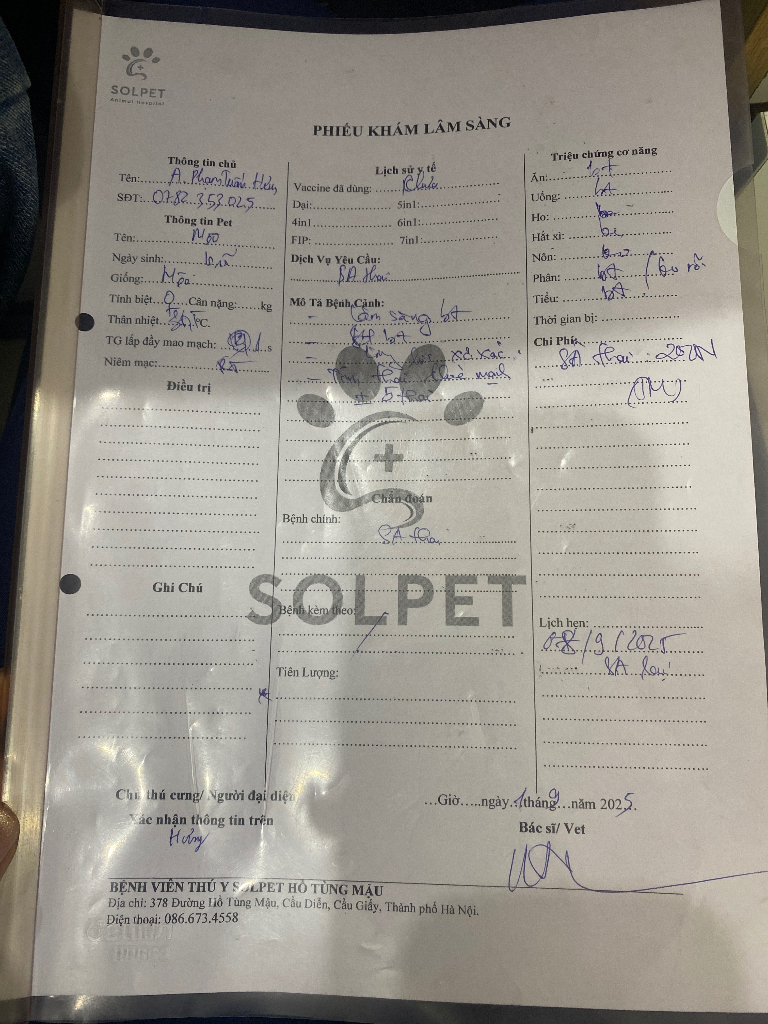 SOLPET
Animal Hospital
PHIẾU KHÁM LÂM SÀNG
Thông tin chủ
Tên: A. Phạm Tuấn
SĐT: 0782.353.025
Thông tin Pet
Tên:
Ngày sinh:
Giống: Mèo
Tính biệt: Cân nặng: kg
Thân nhiệt: °C.
TG lấp đầy mao mạch: 1 s
Niêm mạc:
Điều trị
Ghi Chú
Lịch sử y tế
Vaccine đã dùng:
Dại: 5in1:
4in1 6in1:
FIP: 7in1:
Dịch Vụ Yêu Cầu:
SA thai
Mô Tả Bệnh Cảnh:
- Lâm sàng bt
-
-
- Tim thai
5 thai
Chẩn đoán
Bệnh chính:
SA thai
SOLPET
Bệnh kèm theo:
Tiên Lượng:
Triệu chứng cơ năng
Ăn: bt
Uống: bt
Ho:
Hắt xì:
Nôn:
Phân: bt
Tiểu: bt
Thời gian bị:
Chi Phí:
SA thai: 202N
(TM)
Lịch hẹn:
08/9/2025
SA
Chủ thú cưng/ Người đại diện
Xác nhận thông tin trên
Hưng
Giờ ngày 1 tháng 9 năm 2025.
Bác sĩ/ Vet
BỆNH VIỆN THÚ Y SOLPET HỒ TÙNG MẬU
Địa chỉ: 378 Đường Hồ Tùng Mậu, Cầu Diễn, Cầu Giấy, Thành phố Hà Nội.
Điện thoại: 086.673.4558